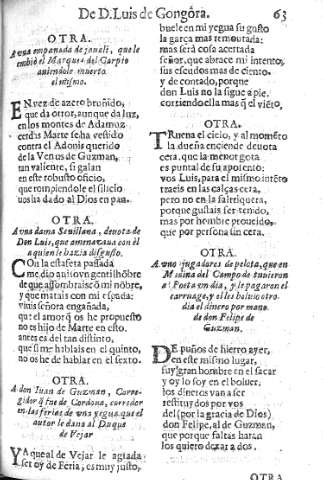 De D. Luis de Gongôra.
63
OTRA.
A una empanada de jauali, que le
embió el Marques del Carpio
auiendole muerto
el mismo.
EN vez de azero bruñido,
que da otros, aunque da luz,
en los montes de Adamuz
verdis Marte seha vestido
contra el Adonis querido
de la Venus de Guzman,
tan valiente, si galan
en este robusto oficio,
que rompiendole el silicio
vos ha dado al Dios en pan.
OTRA.
A vna dama Seuillana, deuota de
Don Luis, que amenazaua con él
a quien le hazia disgusto.
COn la estafeta passada
me dio auiso vn gentilhõbre
de que assombraisce mi nõbre,
y que matais con mi espada:
viuis señora engañada,
que el amor q̃ os he propuesto
no es hijo de Marte en esto,
antes es del tan distinto,
que si me hablais en el quinto,
no os he de hablar en el sexto.
OTRA.
A don Iuan de Guzman, Corre-
gidor q̃ fue de Cordoua, corredor
en las ferias de vna yegua que el
autor le daua al Duque
de Vejar
YA que al de Vejar le agrada
ser oy de Feria, es muy justo,
buele en mi yegua su gusto
la garça mas remontada:
mas será cosa acertada
señor, que abrace mi intento,
sus escudos mas de ciento,
y de contado, porque
don Luis no la sigue a pie,
corriendo ella mas q̃ el viẽto,
OTRA.
TRuena el cielo, y al momẽto
la dueña enciende deuota
cera, que la menor gota
es puntal de su aposento:
vos Luis, para el mismo intẽto
traeis en las calças cera,
pero no en la faltriquera,
porque gustais ser tenido,
mas por hombre proueido,
que por persona sin cera.
OTRA.
A vnos jugadores de pelota, que en
Medina del Campo detuuieron
a Poeta vn dia, y le pagaron el
carruage, y el les boluio otro
dia el dinero por mano
de don Felipe de
Guzman.
DE puños de hierro ayer,
en este mismo lugar,
fuy gran hombre en el sacar
y oy lo soy en el boluer.
los dineros van a ser
restituydos por vos
del (por la gracia de Dios)
don Felipe, al de Guzman,
que porque faltas haran
los quiero dexar a dos.
OTRA